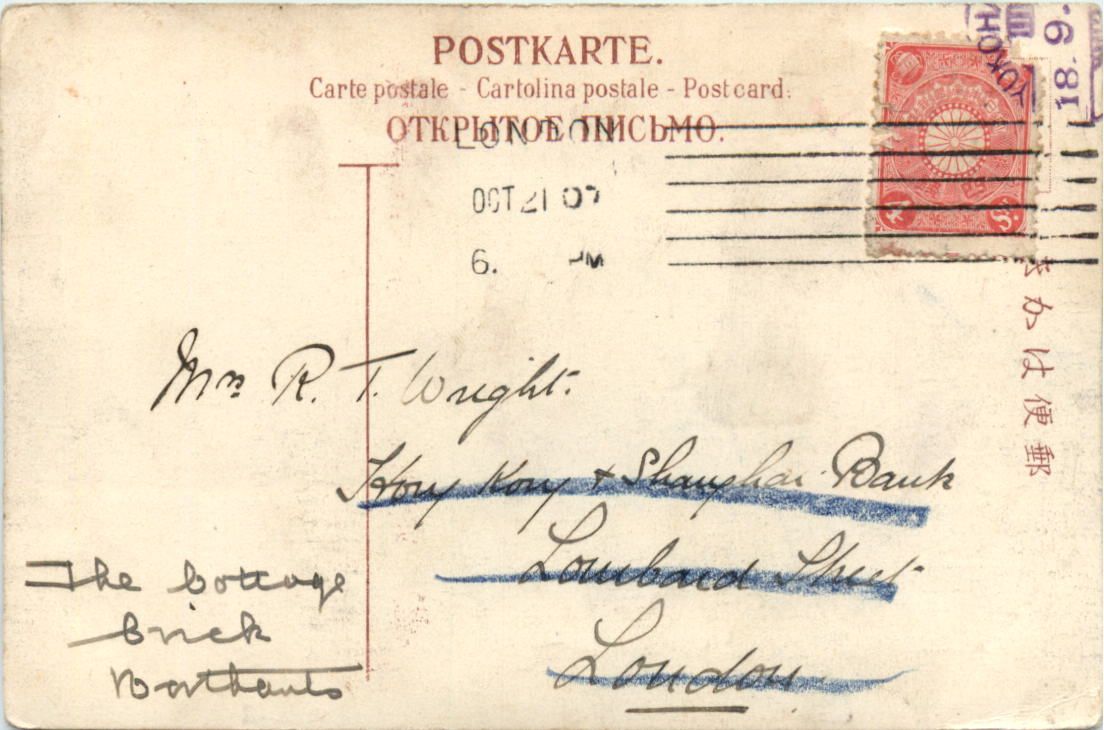 POSTKARTE.
Carte postale - Cartolina postale - Post card.
ОТКРЫТОЕ ПИСЬМО.
YOKOH
18. 9.
4 Sn.
LONDON
OCT 21 07
6. PM
郵便はかき
Mrs R. T. Wright.
Hong Kong & Shanghai Bank
Lombard Street
London
The Cottage
Crick
Northants